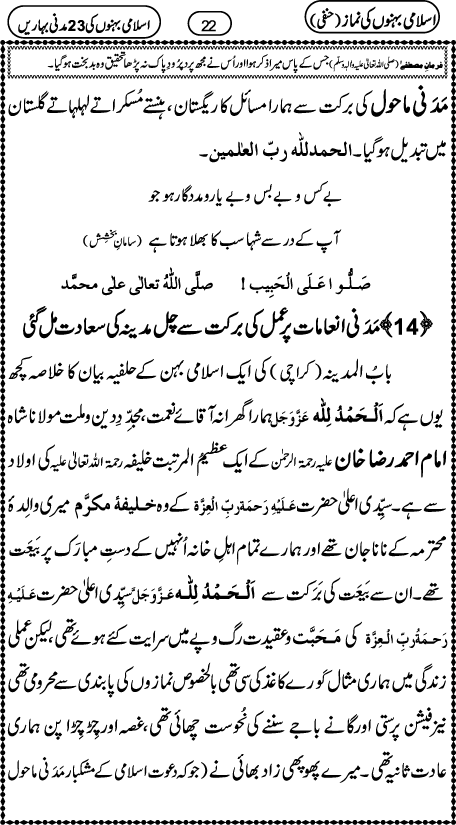 اسلامی بہنوں کی نماز (حنفی)
22
اسلامی بہنوں کی 23 مدنی بہاریں
فرمانِ مصطفٰے: (صلی اللہ تعالیٰ علیہ والہ وسلم) جس کے پاس میرا ذکر ہوا اور اُس نے مجھ پر دُرُودِ پاک نہ پڑھا تحقیق وہ بد بخت ہو گیا۔
مَدَنی ماحول کی برکت سے ہمارا مسائل کا ریگستان، ہنستے مُسکراتے لہلہاتے گلستان
میں تبدیل ہو گیا۔ الحمدللہ ربّ العٰلمین۔
بے کس و بے بس و بے یار و مددگار ہو جو
آپ کے در سے شہا سب کا بھلا ہوتا ہے (سامانِ بخشِش)
صَلُّوا عَلَی الْحَبِیب! صلَّی اللّٰہُ تعالٰی علٰی محمَّد
﴿14﴾ مَدَنی انعامات پر عمل کی برکت سے چل مدینہ کی سعادت مل گئی
بابُ المدینہ (کراچی) کی ایک اسلامی بہن کے حلفیہ بیان کا خلاصہ کچھ
یوں ہے کہ اَلْحَمْدُ لِلّٰہِ عَزَّوَجَلَّ ہمارا گھرانہ آقائے نعمت، مجدِّدِ دین و ملت مولانا شاہ
امام احمد رضا خان علیہ رحمۃ الرحمٰن کے ایک عظیمُ المرتبت خلیفہ رحمۃ اللہ تعالیٰ علیہ کی اولاد
سے ہے۔ سیِّدی اعلیٰ حضرت عَلَیْہِ رَحمَۃُ ربِّ الْعِزَّۃ کے وہ خلیفۂ مکرَّم میری والدۂ
محترمہ کے نانا جان تھے اور ہمارے تمام اہلِ خانہ اُنہیں کے دستِ مبارَک پر بَیْعَت
تھے۔ ان سے بَیعَت کی بَرَکت سے اَلْحَمْدُ لِلّٰہ عَزَّوَجَلَّ سیِّدی اعلیٰ حضرت عَلَیْہِ
رَحمَۃُ ربِّ الْعِزَّۃ کی مَحَبَّت و عقیدت رگ و پے میں سرایت کئے ہوئے تھی، لیکن عملی
زندگی میں ہماری مثال کَورے کاغذ کی سی تھی بالخصوص نمازوں کی پابندی سے محرومی تھی
نیز فیشن پرستی اور گانے باجے سننے کی نُحُوست چھائی تھی، غصہ اور چِڑ چِڑا پن ہماری
عادت ثانیہ تھی۔ میرے پھوپھی زاد بھائی نے (جو کہ دعوت اسلامی کے مشکبار مَدَنی ماحول